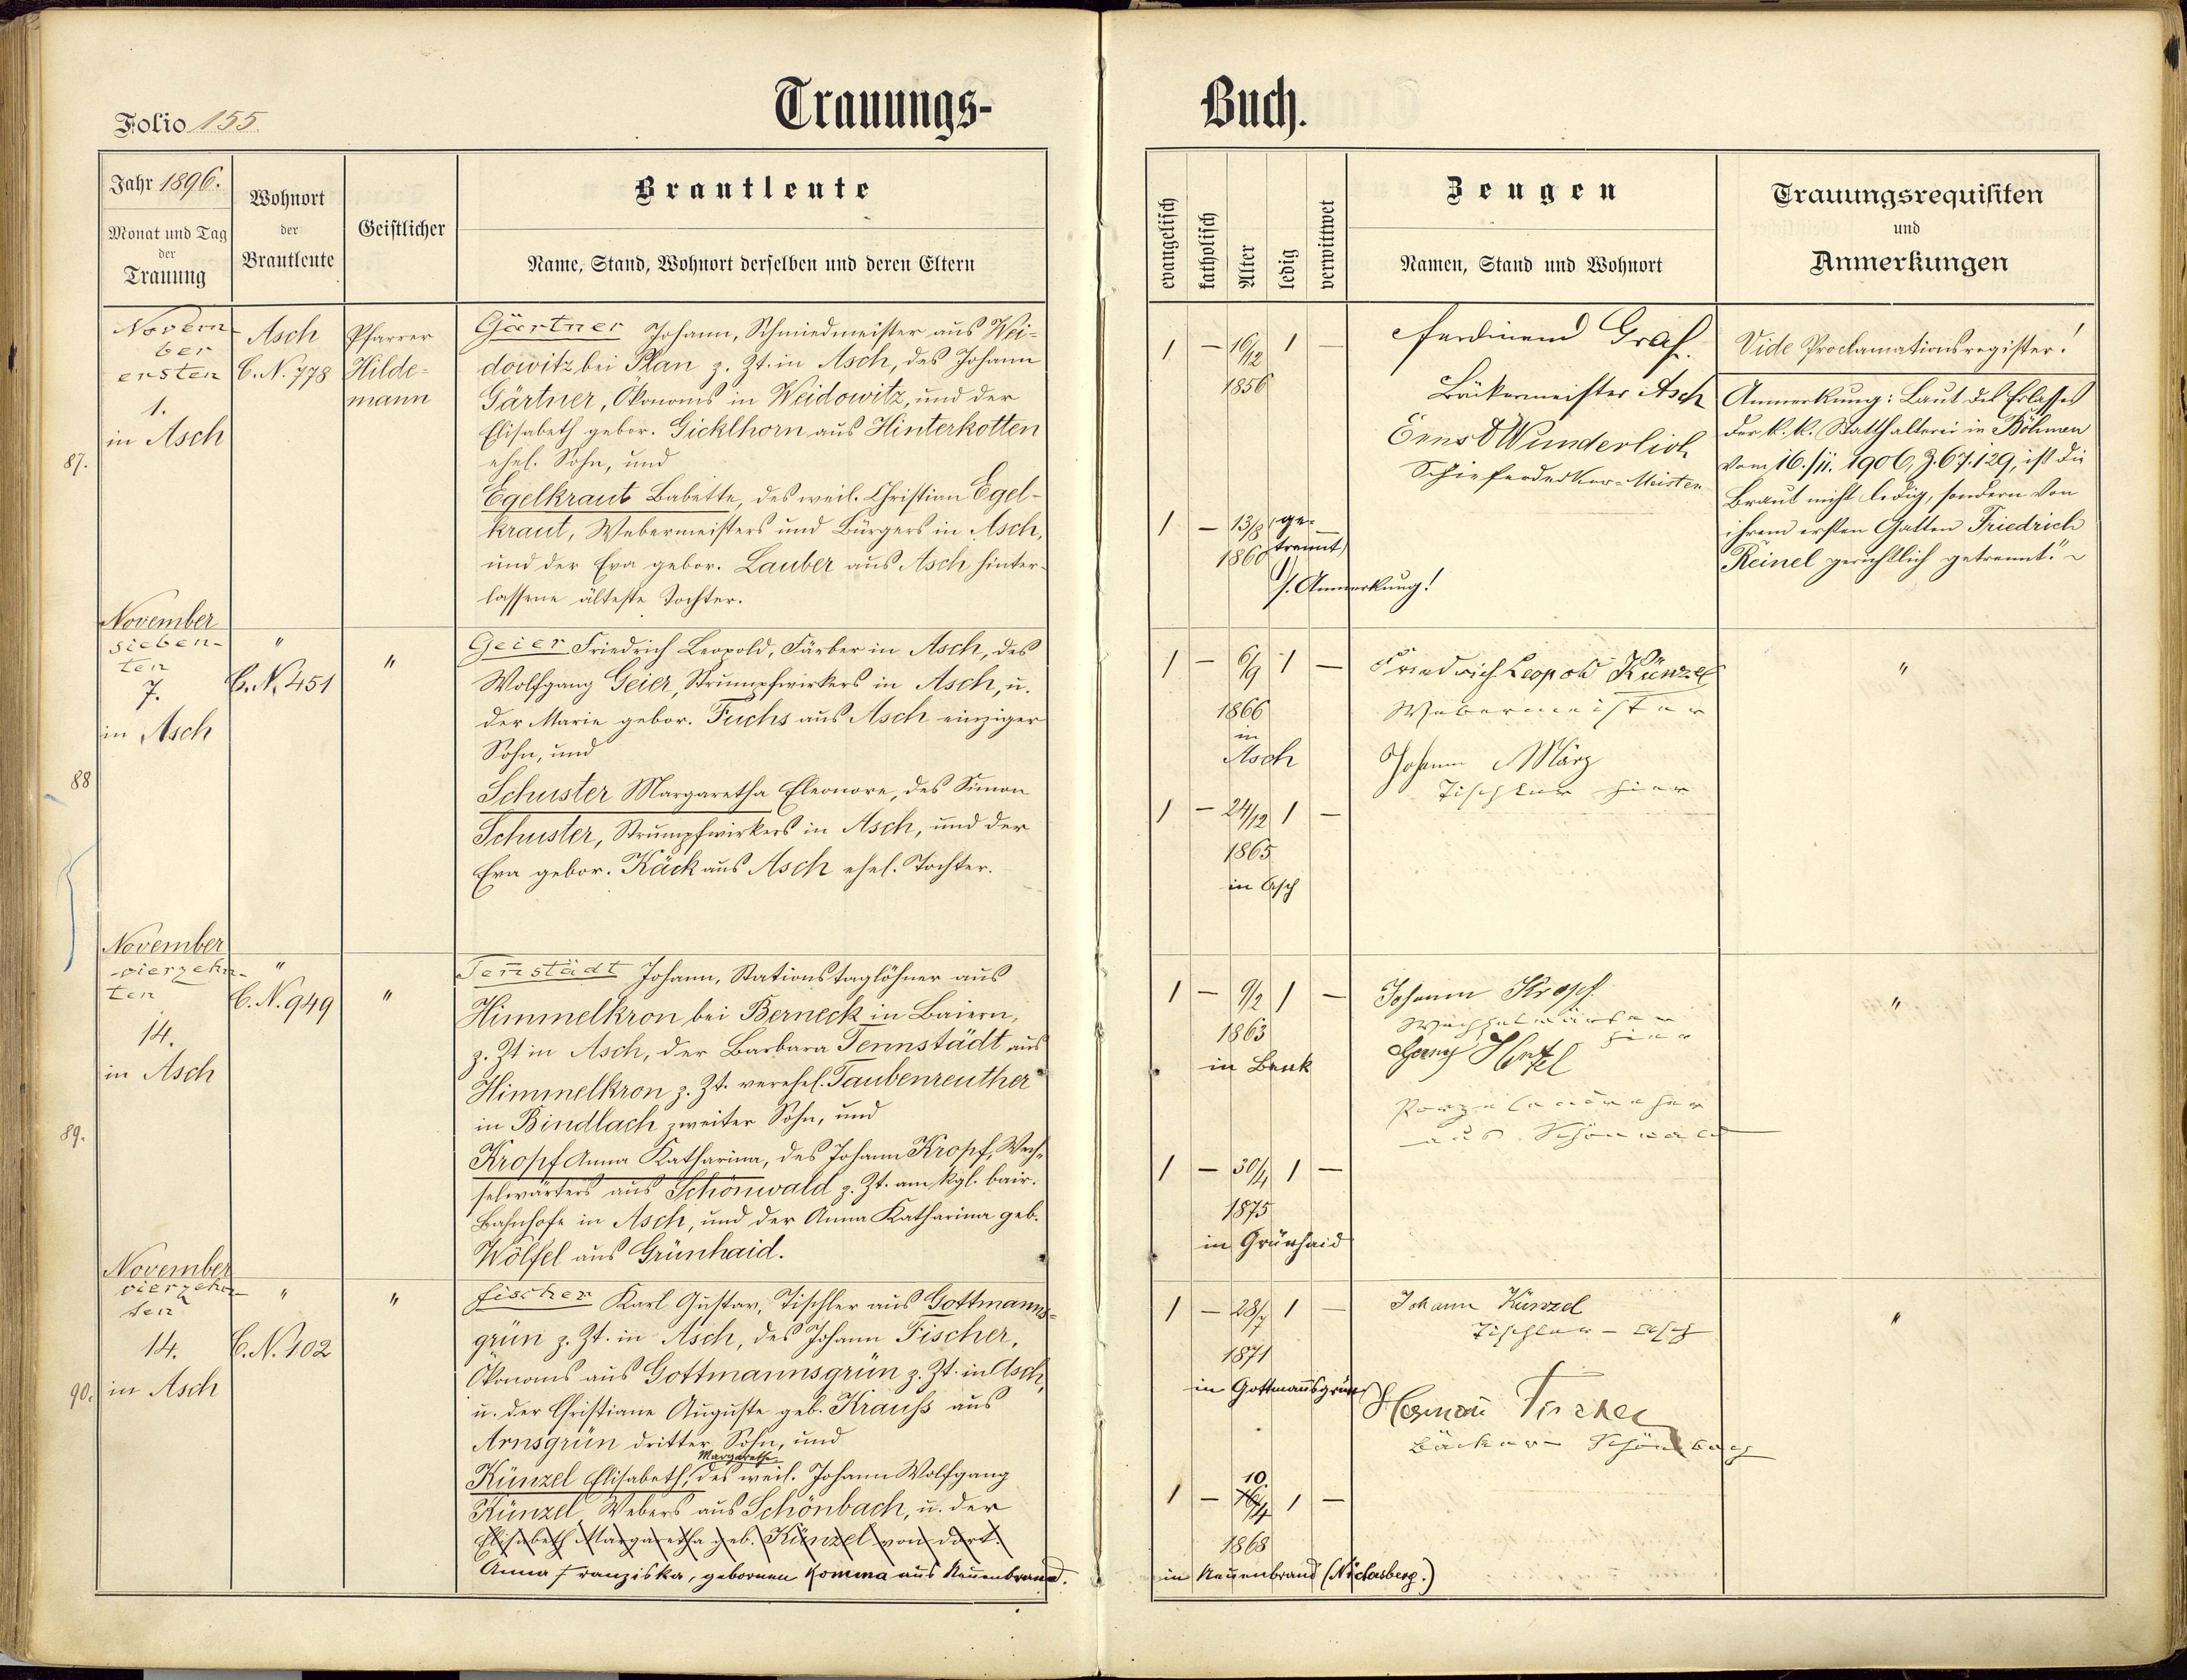 Folio 155.
Trauungs-
Jahr 1896.
Monat und Tag
der
Trauung
Wohnort
der
Brautleute
Geistlicher
Brautleute
Name, Stand, Wohnort derselben und deren Eltern
87.
Novem-
ber
ersten
1.
in Asch
Asch
C. N. 778
Pfarrer
Hilde=
mann
Gärtner Johann, Schmiedmeister aus Wei=
dowitz bei Plan z. Zt. in Asch, des Johann
Gärtner, Ökonoms in Weidowitz, und der
Elisabeth gebor. Gicklhorn aus Hinterkotten
ehel. Sohn, und
Egelkraut Babette, des weil. Christian Egel-
kraut, Webermeisters und Bürgers in Asch,
und der Eva gebor. Lauber aus Asch hinter-
lassene älteste Tochter.
88
November
sieben-
ten
7.
in Asch
"
C. N. 451
"
Geier Friedrich Leopold, Färber in Asch, des
Wolfgang Geier, Strumpfwirkers in Asch, u.
der Marie gebor. Fuchs aus Asch einziger
Sohn, und
Schuster Margaretha Eleonore, des Simon
Schuster, Strumpfwirkers in Asch, und der
Eva gebor. Käck aus Asch ehel. Tochter.
89.
November
vierzehn-
ten
14.
in Asch
"
C. N. 949
"
Ten̄städt Johann, Stationstaglöhner aus
Himmelkron bei Berneck in Baiern,
z. Zt in Asch, der Barbara Tennstädt aus
Himmelkron z. Zt. verehel. Taubenreuther
in Bindlach zweiter Sohn, und
Kropf Anna Katharina, des Johann Kropf, Wech-
selwärters aus Schönwald z. Zt. am kgl. bair.
Bahnhofe in Asch, und der Anna Katharina geb.
Wölfel aus Grünhaid.
90.
November
vierzehn-
ten
14.
in Asch
"
C. N. 102
"
Fischer Karl Gustav, Tischler aus Gottmanns=
grün z. Zt. in Asch, des Johann Fischer,
Ökonoms aus Gottmannsgrün z. Zt. in Asch,
u. der Christiane Auguste geb. Krauß aus
Arnsgrün dritter Sohn, und
Margaretha
Künzel Elisabeth, des weil. Johann Wolfgang
Künzel Webers aus Schönbach, u. der
Elisabeth Margaretha geb. Künzel von dort.
Anna Franziska, gebornen Komma aus Neuenbrand.
Buch.
evangelisch
katholisch
Alter
ledig
verwittwet
Zeugen
Namen, Stand und Wohnort
Trauungsrequisiten
und
Anmerkungen
1 — 16/12 1 —
1856
1 — 13/8 (ge- —
1860 trennt)
s. Anmerkung!
Ferdinand Graf.
Bäkermeister Asch
Ernst Wunderlich
Schieferdecker-Meister
Vide Proclamationsregister!
Anmerkung: Laut des Erlasses
der k. k. Statthalterei in Böhmen
vom 16./11. 1906, Z. 67.129, ist die
Braut nicht ledig, sondern von
ihrem ersten Gatten Friedrich
Reinel gerichtlich getrennt."
1 — 6/9 1 —
1866
in
Asch
1 — 24/12 1 —
1865
in Asch
Friedrich Leopold Künzel
Webermeister
Johann März
Tischler hier
"
1 — 9/2 1 —
1863
in Benk
1 — 30/4 1 —
1875
in Grünhaid
Johann Kropf
Wechselwärter
hier
Georg
aus Schönwald
"
1 — 28/7 1 —
1871
in Gottman̄sgrün
10
1 — 16/4 1 —
1868
in Neuenbrand (Niclasberg.)
Johann Künzel
Tischler - Asch
Herman̄ Fischer
Bäcker - Schönbach
"